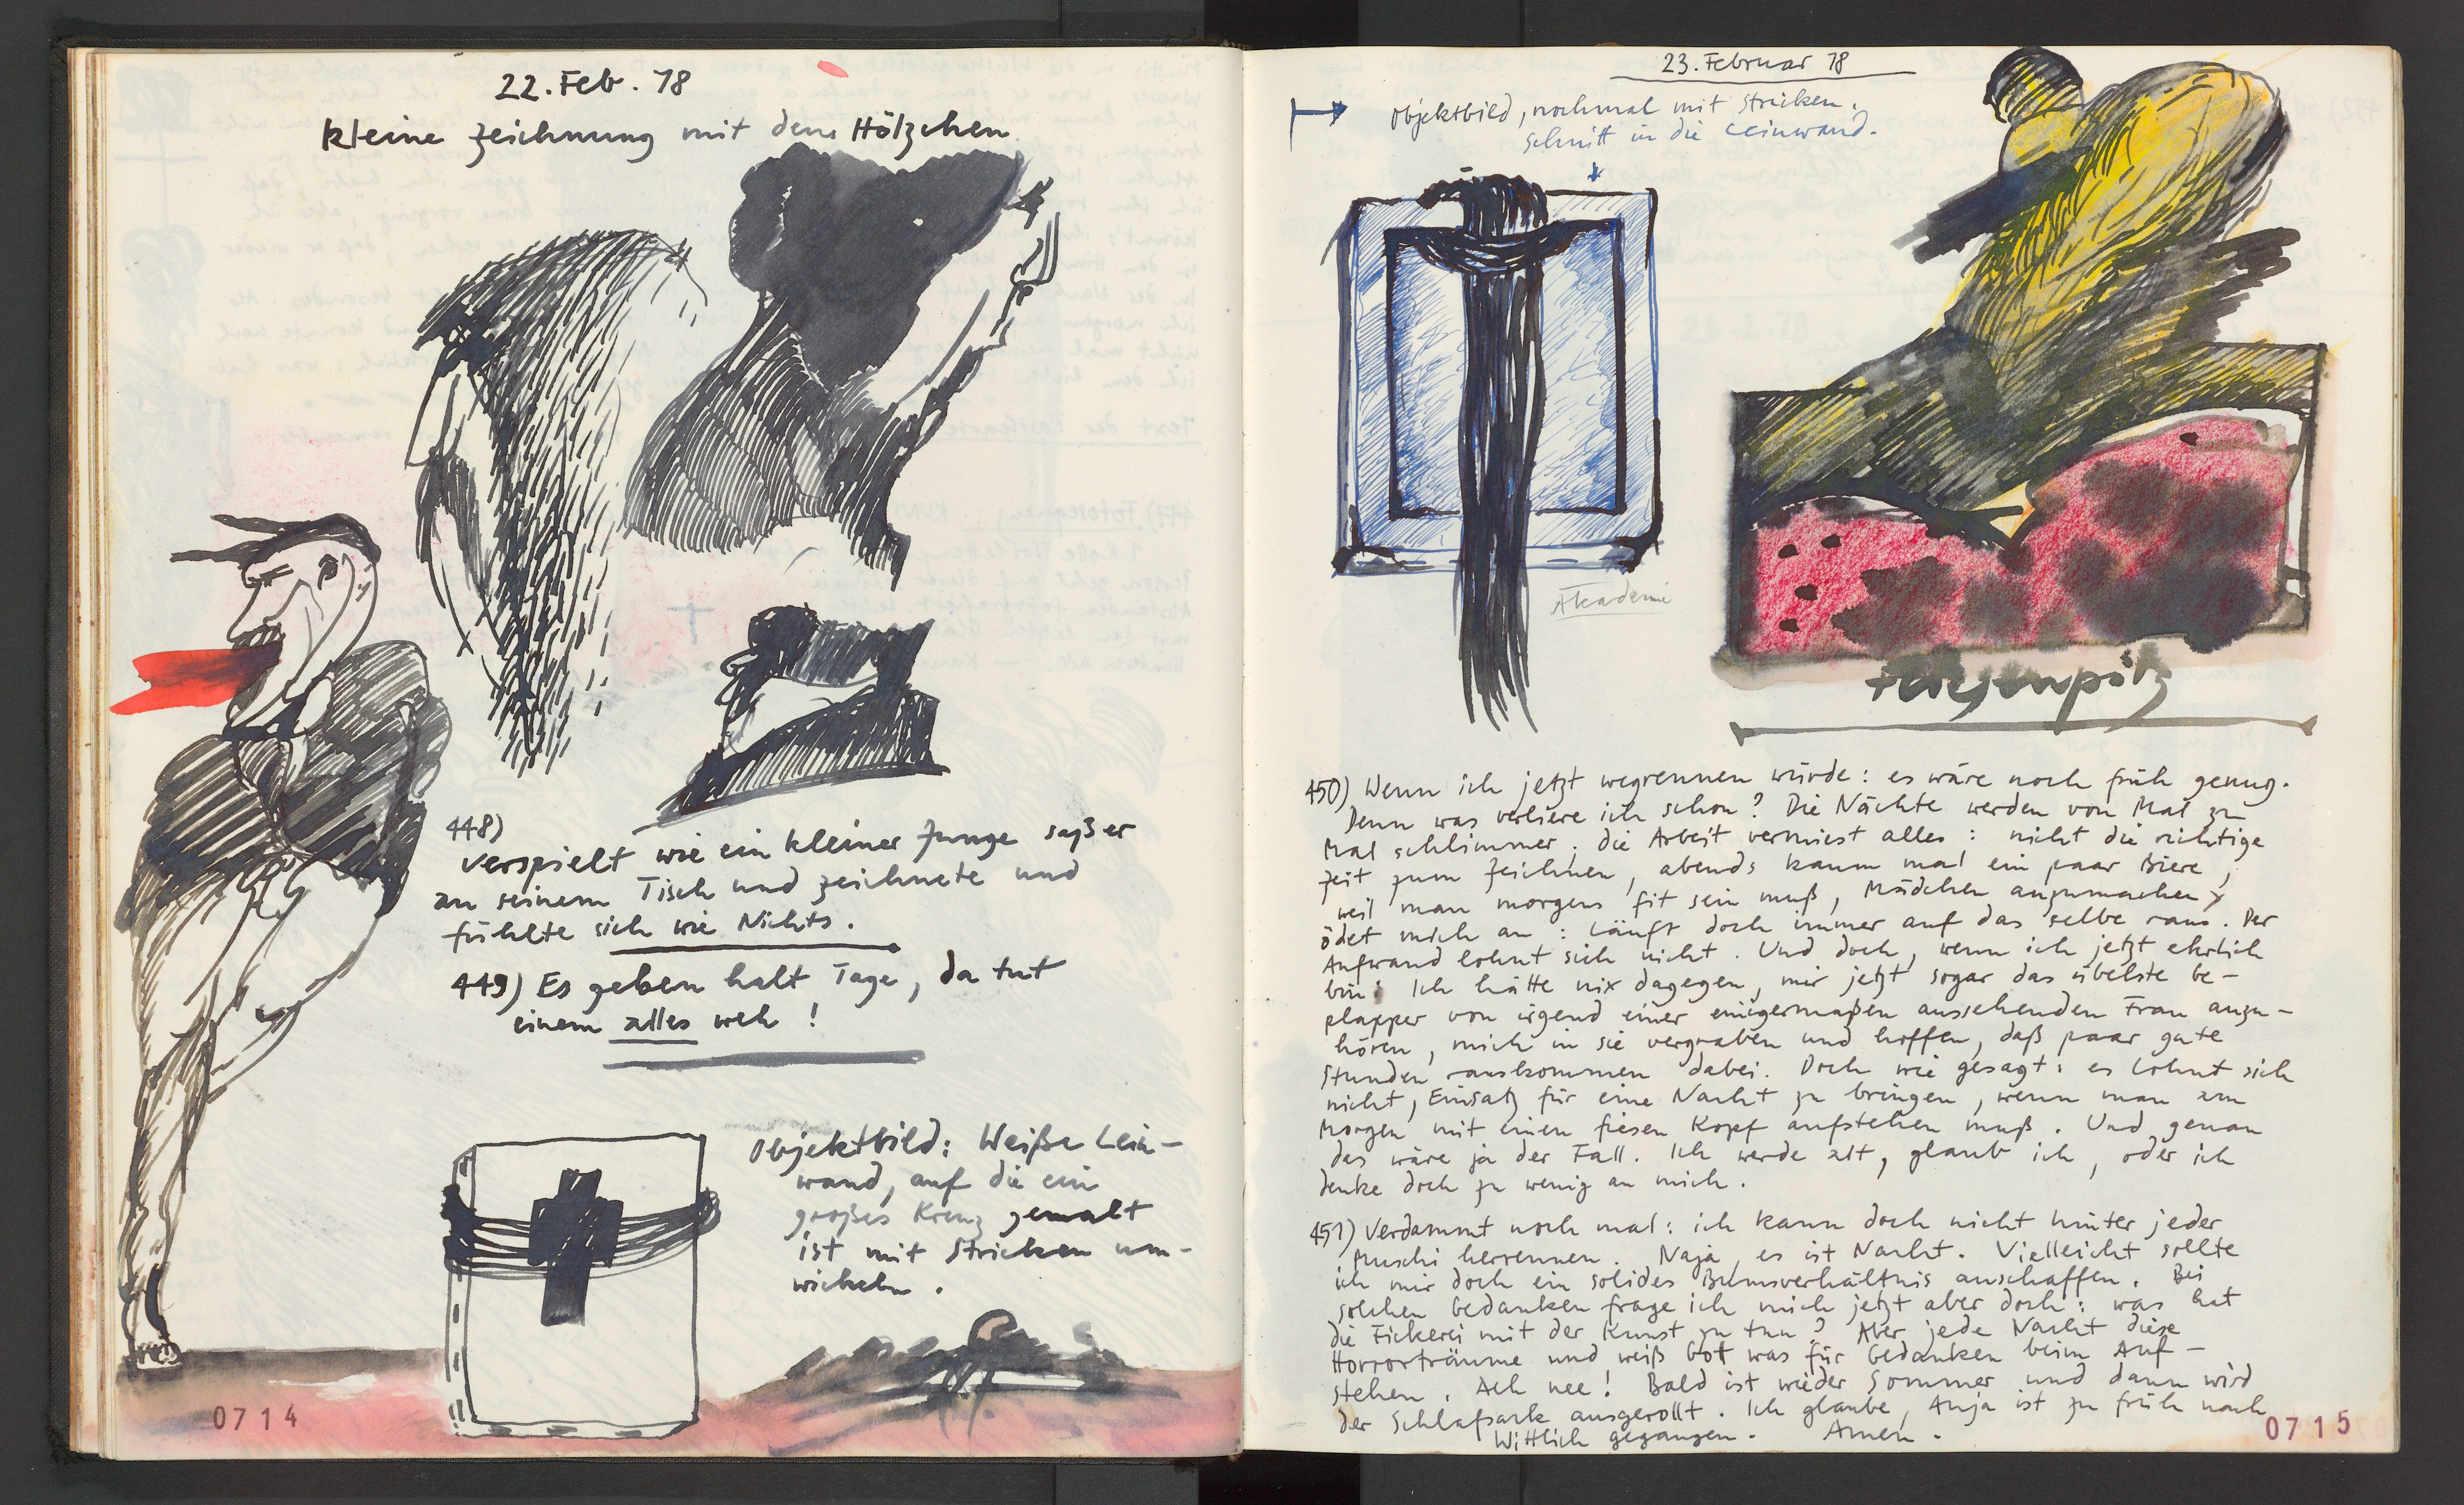 22. Feb. 78
kleine Zeichnung mit dem Hölzchen
448)
Verspielt wie ein kleiner Junge saß er
an seinem Tisch und zeichnete und
fühlte sich wie Nichts.
449) Es geben halt Tage, da tut
einem alles weh!
Objektbild: Weiße Lein-
wand, auf die ein
großes Kreuz gemalt
ist mit Stricken um-
wickeln.
0714
23. Februar 78
Objektbild, nochmal mit Stricken.
Schnitt in die Leinwand.
Akademie
450) Wenn ich jetzt wegrennen würde: es wäre noch früh genug.
Denn was verliere ich schon? Die Nächte werden von Mal zu
Mal schlimmer, die Arbeit vermiest alles: nicht die richtige
Zeit zum Zeichnen, abends kaum mal ein paar Biere,
weil man morgens fit sein muß, Mädchen anzumachen
ödet mich an: läuft doch immer auf das selbe raus. Der
Aufwand lohnt sich nicht. Und doch, wenn ich jetzt ehrlich
bin: Ich hätte nix dagegen, mir jetzt sogar das übelste Ge-
plapper von irgend einer einigermaßen aussehenden Frau anzu-
hören, mich in sie vergraben und hoffen, daß paar gute
Stunden rauskommen dabei. Doch wie gesagt: es lohnt sich
nicht, Einsatz für eine Nacht zu bringen, wenn man am
Morgen mit einen fiesen Kopf aufstehen muß. Und genau
das wäre ja der Fall. Ich werde alt, glaub ich, oder ich
denke doch zu wenig an mich.
451) Verdammt noch mal: ich kann doch nicht hinter jeder
Muschi herrennen. Naja, es ist Nacht. Vielleicht sollte
ich mir doch ein solides Bumsverhältnis anschaffen. Bei
solchen Gedanken frage ich mich jetzt aber doch: was hat
die Fickerei mit der Kunst zu tun? Aber jede Nacht diese
Horrorträume und weiß Gott was für Gedanken beim Auf-
stehen. Ach nee! Bald ist wieder Sommer und dann wird
der Schlafsack ausgerollt. Ich glaube, Anja ist zu früh nach
Wittlich gegangen. Amen.
0715